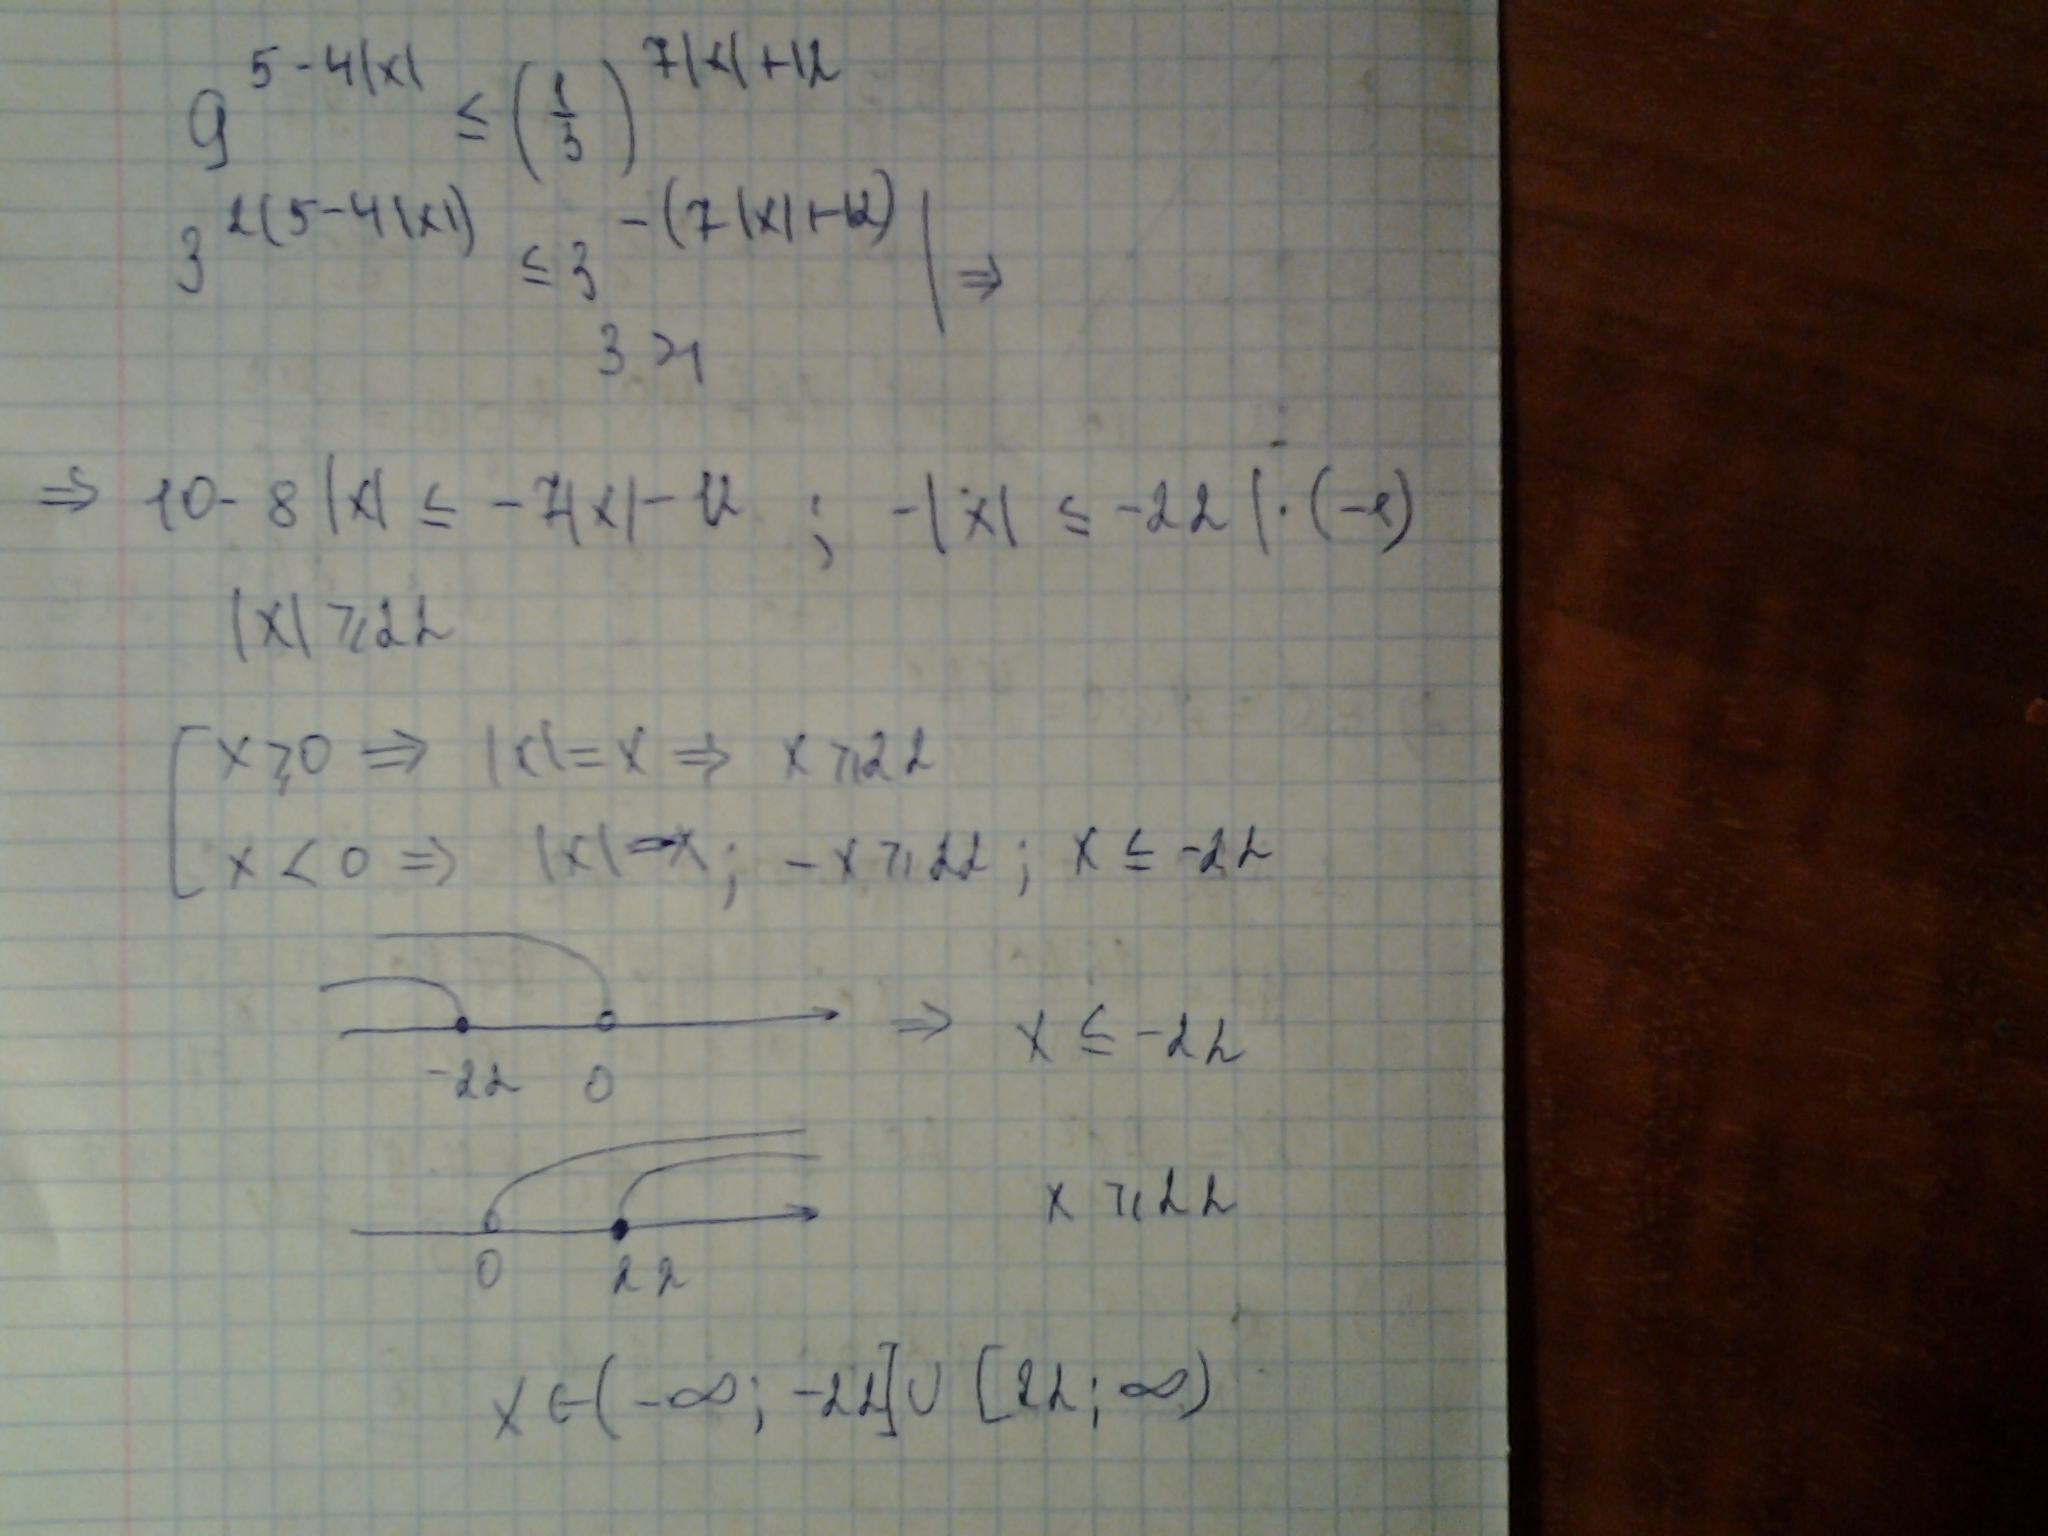 9^(5-4|x|) ≤ (1/3)^(7|x|+12)
3^(2(5-4|x|)) ≤ 3^(-(7|x|+12)) | ⇒
3 > 1
⇒ 10 - 8|x| ≤ -7|x| - 12 ; -|x| ≤ -22 | · (-1)
|x| ⩾ 22
[ x ⩾ 0 ⇒ |x| = x ⇒ x ⩾ 22
x < 0 ⇒ |x| = -x ; -x ⩾ 22 ; x ≤ -22
-22 0 ⇒ x ≤ -22
0 22 x ⩾ 22
x ∈ (-∞; -22] ∪ [22; ∞)